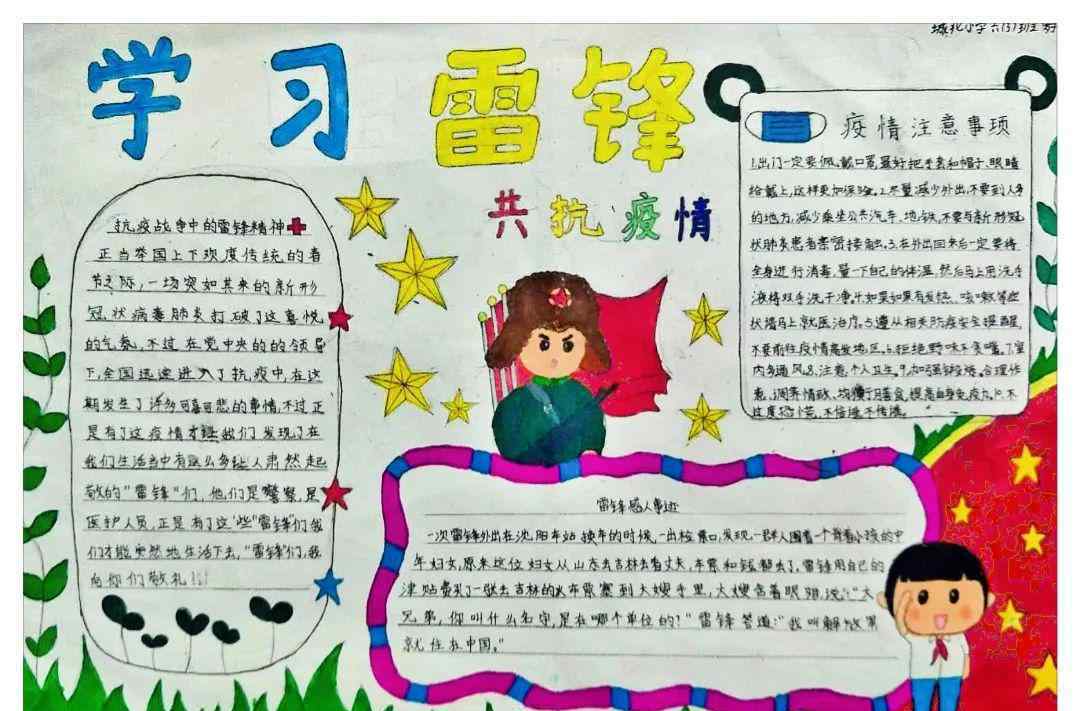 城北小学六(3)班
学习雷锋
共抗疫情
抗疫战争中的雷锋精神
正当举国上下欢度传统的春
节之际,一场突如其来的新形
冠状病毒肺炎打破了这喜悦
的气氛,不过在党中央的的领导
下,全国迅速进入了抗疫中,在这
期发生了许多可喜可悲的事情,不过正
是有了这疫情才让我们发现了在
我们生活当中有这么多让人肃然起
敬的“雷锋”们,他们是警察,是
医护人员,正是有了这些“雷锋”们我
们才能安然地生活下去,“雷锋”们,我
向你们敬礼!!!
疫情注意事项
1.出门一定要佩戴口罩,最好把手套和帽子、眼睛
给戴上,这样更加保险。2.尽量减少外出,不要到人多
的地方,减少乘坐公共汽车、地铁,不要与新形冠
状肺炎患者亲密接触。3.在外出回来后一定要将
全身进行消毒,量一下自己的体温,然后马上用洗手
液将双手洗干净。4.如果如果有发热、咳嗽等症
状请马上就医治疗。5.遵从相关防疫安全提醒,
不要前往疫情高发地区。6.拒绝野味不贪嘴。7.室
内多通风。8.注意个人卫生。9.加强锻炼。合理作
息、调养情致、均衡膳食,提高自身免疫力。10.不
过度恐慌,不信谣不传谣。
雷锋感人事迹
一次雷锋外出在沈阳车站换车的时候,一出检票口,发现一群人围着一个背着小孩的中
年妇女,原来这位妇女从山东去吉林看丈夫,车票和钱都丢了,雷锋用自己的
津贴费买了一张去吉林的火车票塞到大嫂手里,大嫂含着眼泪说:“大
兄弟,你叫什么名字,是在哪个单位的?”雷锋答道:“我叫解放军
就住在中国。”